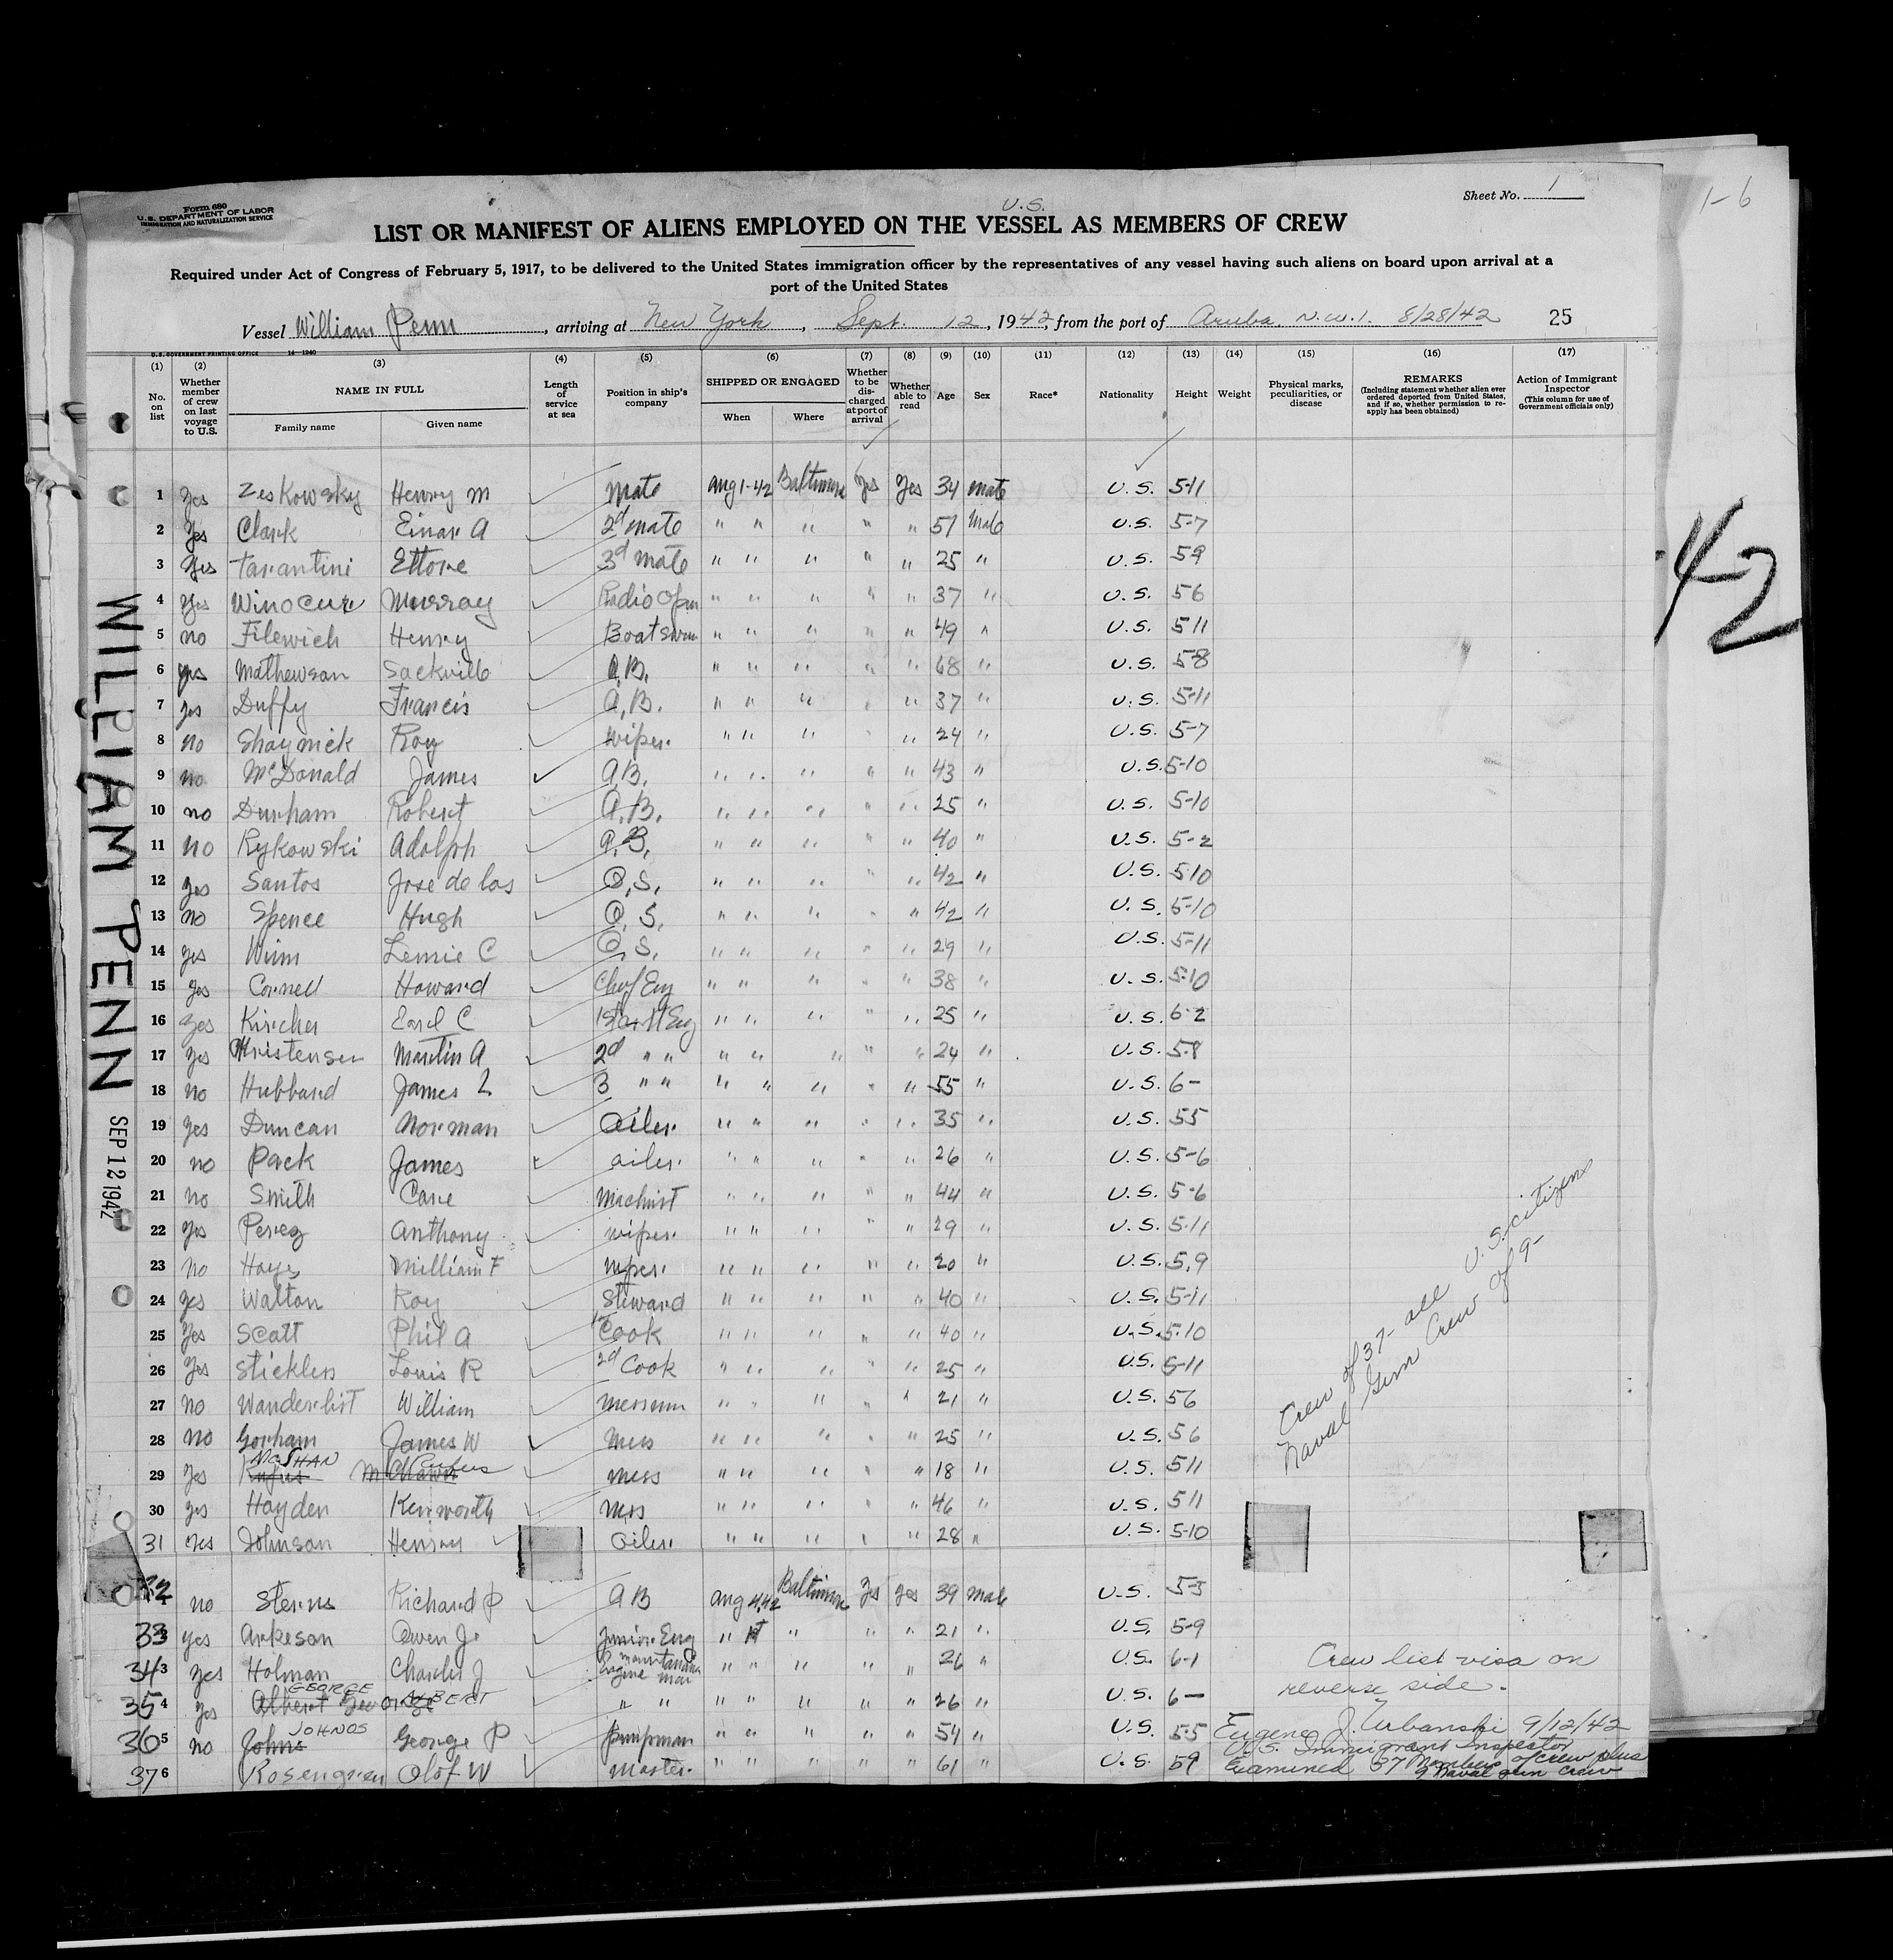 Form 680
U.S. DEPARTMENT OF LABOR
IMMIGRATION AND NATURALIZATION SERVICE
Sheet No. 1
1-6
U.S.
LIST OR MANIFEST OF ALIENS EMPLOYED ON THE VESSEL AS MEMBERS OF CREW
Required under Act of Congress of February 5, 1917, to be delivered to the United States immigration officer by the representatives of any vessel having such aliens on board upon arrival at a
port of the United States
Vessel William Penn, arriving at New York, Sept. 12, 1942, from the port of Aruba. N.W.I. 8/28/42 25
U.S. GOVERNMENT PRINTING OFFICE 14-1240
(1) (2) (3) (4) (5) (6) (7) (8) (9) (10) (11) (12) (13) (14) (15) (16) (17)
No. on list
Whether member of crew on last voyage to U.S.
NAME IN FULL
Family name
Given name
Length of service at sea
Position in ship's company
SHIPPED OR ENGAGED
When
Where
Whether to be discharged at port of arrival
Whether able to read
Age
Sex
Race*
Nationality
Height
Weight
Physical marks, peculiarities, or disease
REMARKS
(Including statement whether alien ever ordered deported from United States, and if so, whether permission to reapply has been obtained)
Action of Immigrant Inspector
(This column for use of Government officials only)
1 Yes Zeskowsky Henry M Mate Aug 1-42 Baltimore Yes Yes 34 male U.S. 5-11
2 Yes Clark Einar A 2d mate " " " " " 51 Male U.S. 5-7
3 Yes Tarantini Ettore 3d mate " " " " " 25 " U.S. 59
4 Yes Winocur Murray Radio Oper " " " " " 37 " U.S. 56
5 no Filewich Henry Boatswn " " " " " 49 " U.S. 511
6 yes Mathewson Sackville A.B. " " " " " 68 " U.S. 58
7 yes Duffy Francis A.B. " " " " " 37 " U.S. 5-11
8 no Shaynick Roy wiper " " " " " 24 " U.S. 5-7
9 no McDonald James A.B. " " " " " 43 " U.S. 5-10
10 no Durham Robert A.B. " " " " " 25 " U.S. 5-10
11 no Rykowski Adolph A.B. " " " " " 40 " U.S. 5-2
12 yes Santos Jose de los O.S. " " " " " 42 " U.S. 510
13 no Spence Hugh O.S. " " " " " 42 " U.S. 5-10
14 yes Winn Lemie C O.S. " " " " " 29 " U.S. 5-11
15 yes Cornell Howard Chief Eng " " " " " 38 " U.S. 5-10
16 yes Kircher Earl C 1st Asst Eng " " " " " 25 " U.S. 6-2
17 yes Kristensen Martin A 2d " " " " " " " 24 " U.S. 58
18 no Hubbard James L 3 " " " " " " " 55 " U.S. 6-
19 yes Duncan Norman Oiler " " " " " 35 " U.S. 55
20 no Pack James oiler " " " " " 26 " U.S. 5-6
21 no Smith Care Machinst " " " " " 44 " U.S. 5-6
22 yes Perez Anthony wiper " " " " " 29 " U.S. 5-11
23 No Hayes William F wiper " " " " " 20 " U.S. 5,9
24 yes Walton Roy Steward " " " " " 40 " U.S. 5-11
25 Yes Scott Phil A Cook " " " " " 40 " U.S. 5-10
26 Yes Sticklers Louis R 2d Cook " " " " " 25 " U.S. 5-11
27 no Wanderlist William messman " " " " " 21 " U.S. 56
28 no Gorham James W Mess " " " " " 25 " U.S. 56
McSHAN Rufus
29 Yes Rufus McShawn mess " " " " " 18 " U.S. 511
30 yes Hayden Kenworth mess " " " " " 46 " U.S. 511
31 yes Johnson Henry Oiler " " " " " 28 " U.S. 5-10
32 no Sterns Richard P AB Aug 4,42 Baltimore Yes yes 39 male U.S. 5-3
33 yes Arkeson Owen Jr Junior Eng " 1st " " " 21 " U.S. 5-9
34 3 yes Holman Charles J Engine maintance man " " " " " 26 " U.S. 6-1
GEORGE ALBERT
35 4 yes Albert George " " " " " " " 26 " U.S. 6-
JOHNOS
36 5 no Johns George P Pumpman " " " " " 54 " U.S. 55
37 6 Rosengren Olof W Master " " " " " 61 " U.S. 59
Crew of 37- all U.S. citizens
Naval Gun Crew of 9-
Crew list visa on
reverse side.
Eugene J. Urbanski 9/12/42
U.S. Immigrant Inspector
Examined 37 Members of crew plus
9 Naval gun crew
WILLIAM PENN
SEP 12 1942
42